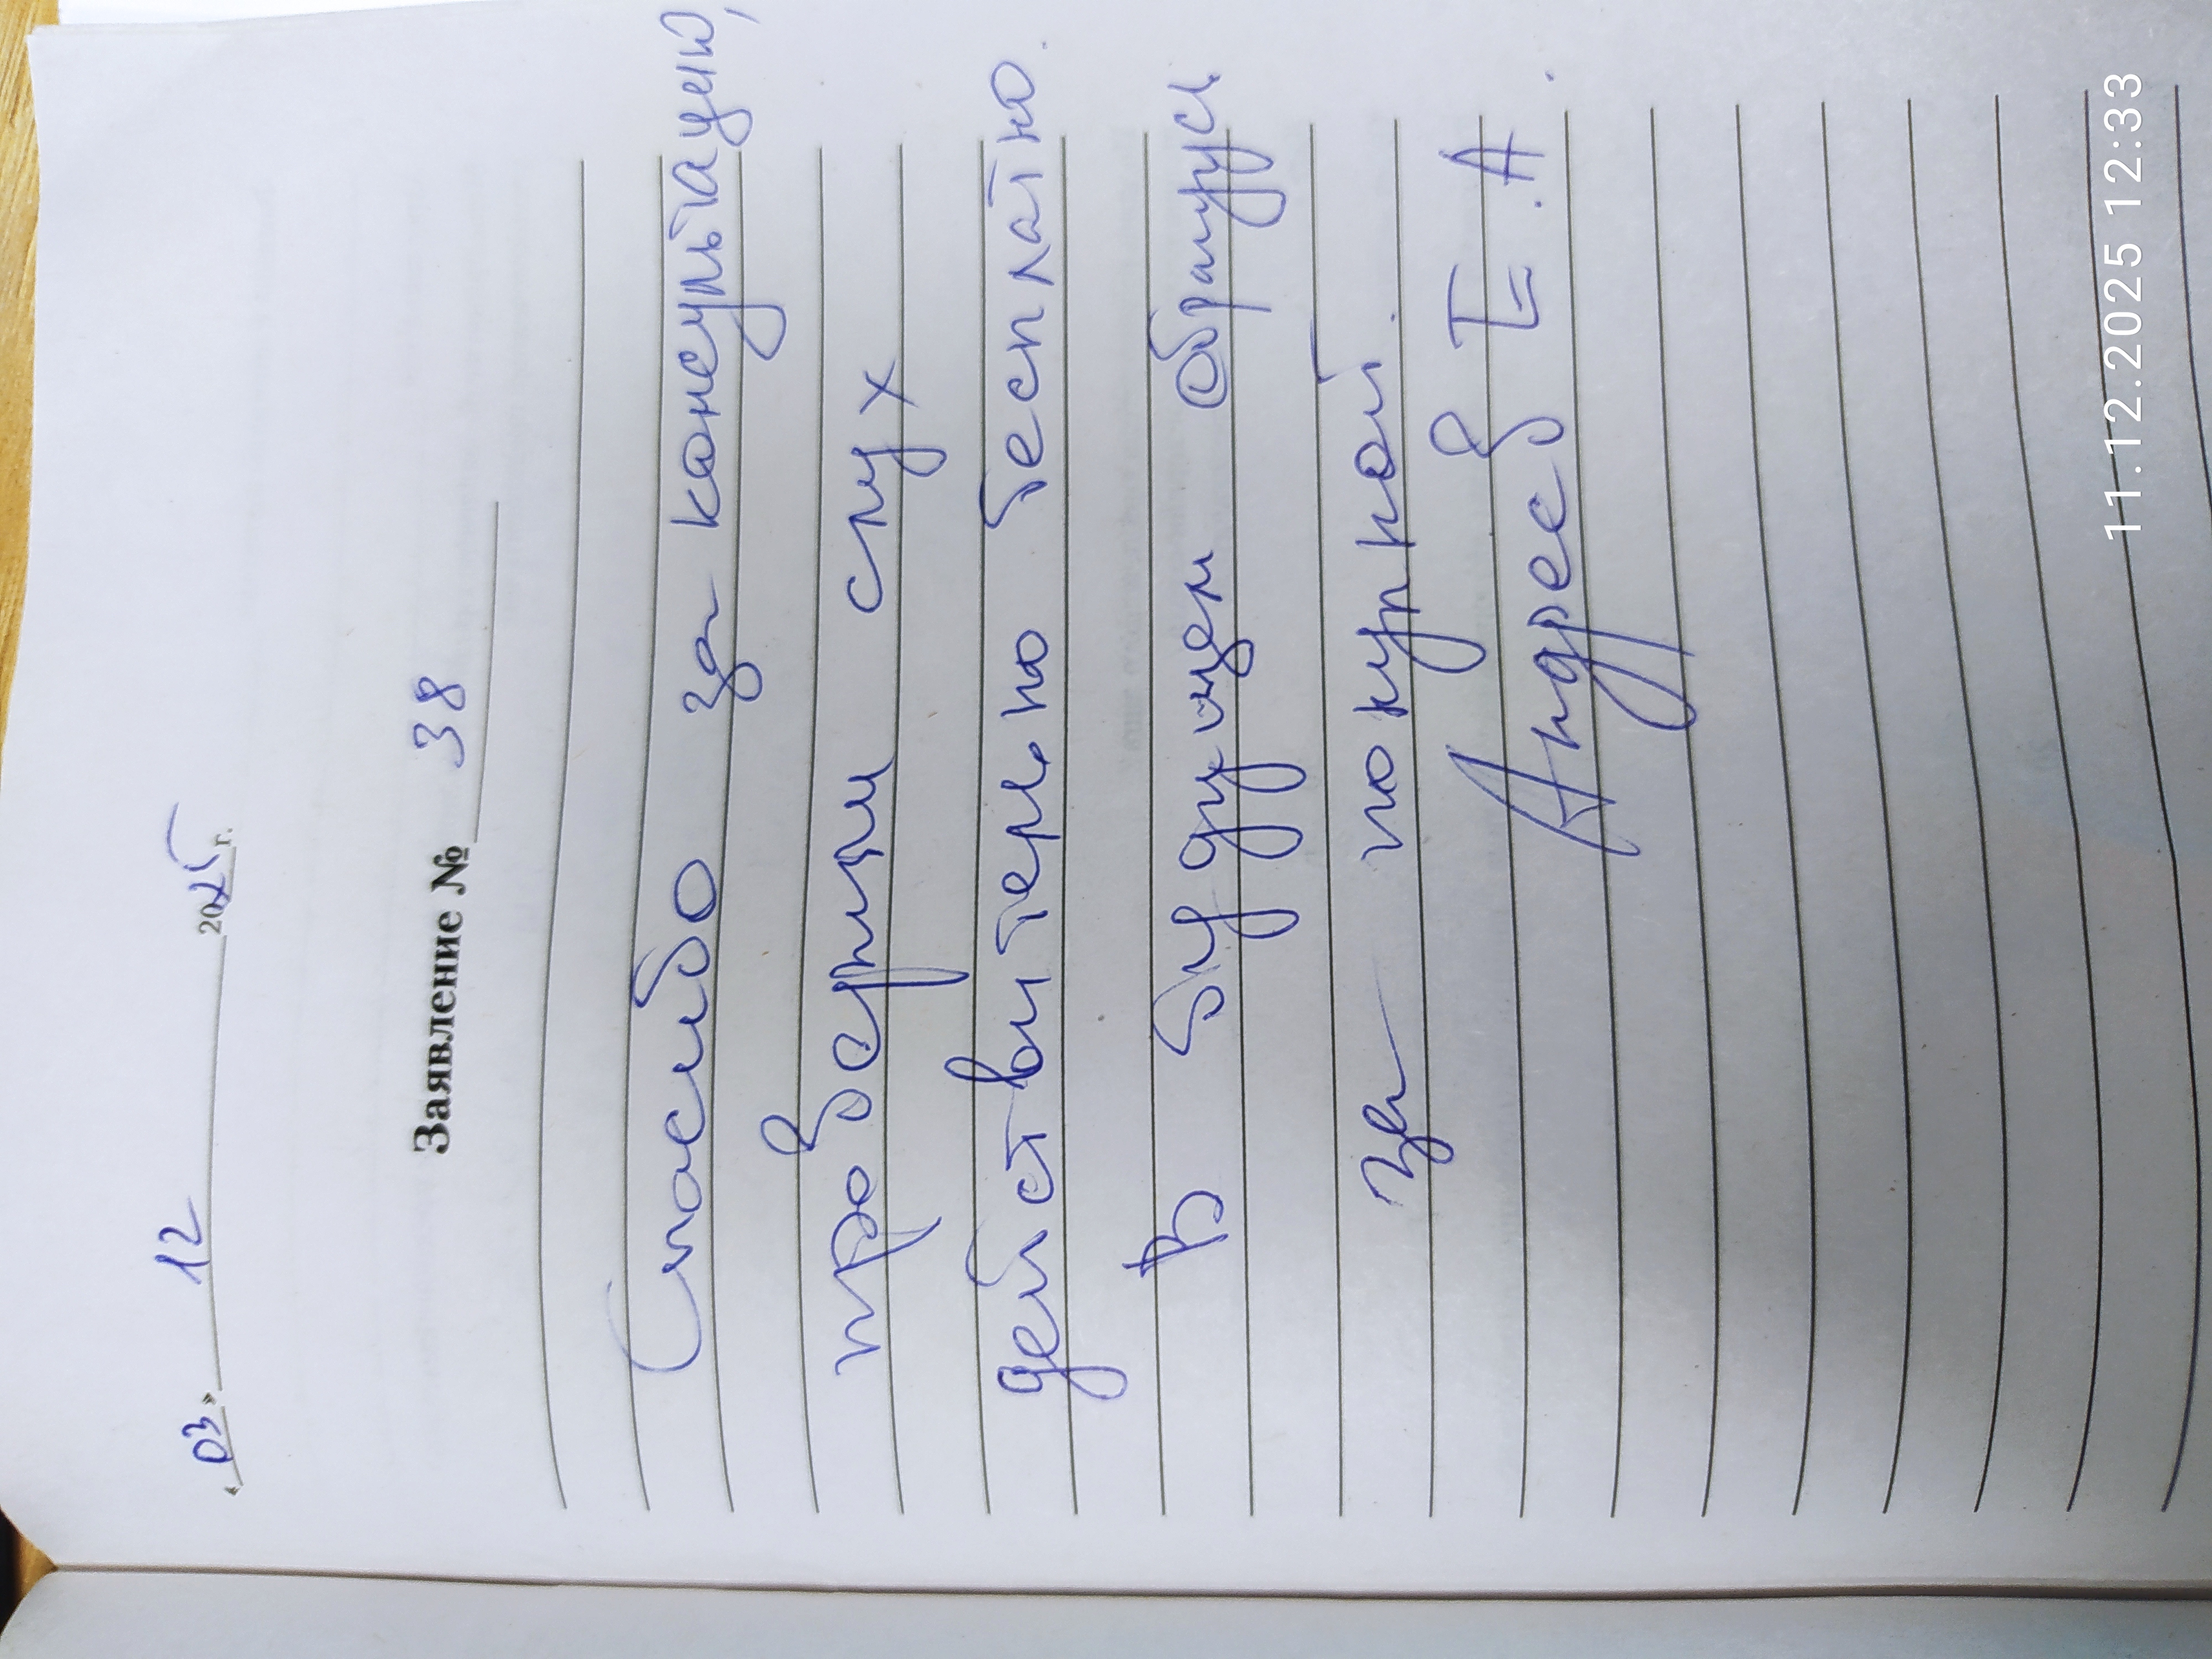 « 03 » 12 2025 г.
Заявление № 38
Спасибо за консультацию,
проверили слух
действительно бесплатно.
В будущем обращусь
за покупкой.
Андреев Е.А.
11.12.2025 12:33